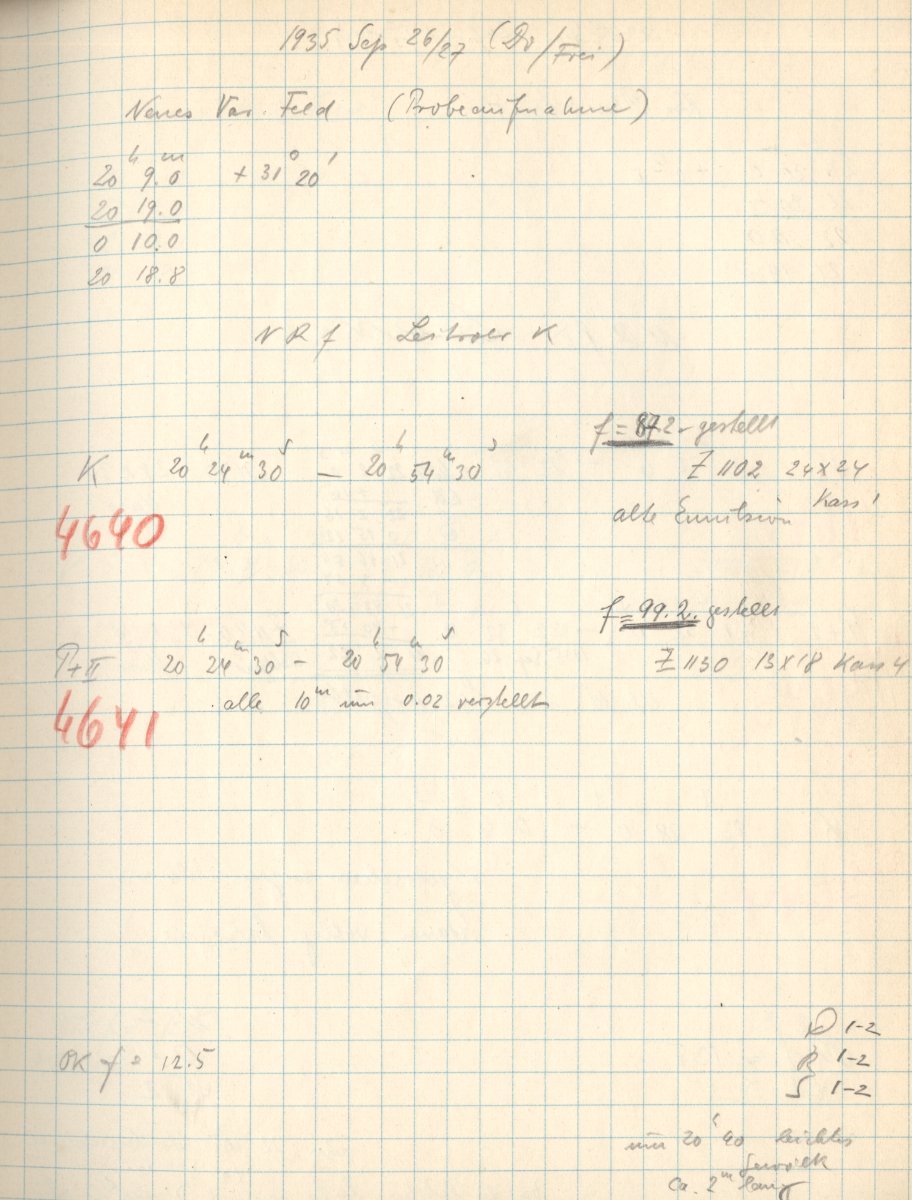 1935 Sep 26/27 (Do/Frei)
Neues Var. Feld (Probeaufnahme)
20ʰ 9.0ᵐ + 31° 20'
20 19.0
0 10.0
20 18.8
Leitrohr K
f = 87.2 gestellt
K 20ʰ 24ᵐ 30ˢ — 20ʰ 54ᵐ 30ˢ
Z 1102 24x24
Kass 1
alte Emulsion
4640
f = 99.2. gestellt
20ʰ 24ᵐ 30ˢ — 20ʰ 54ᵐ 30ˢ
Z 1130 13x18 Kass 4
alle 10ᵐ um 0.02 verstellt
4641
D 1-2
OK f = 12.5
R 1-2
S 1-2
um 20ʰ 40 leichtes
Gewölk
Ca. 2ᵐ lang